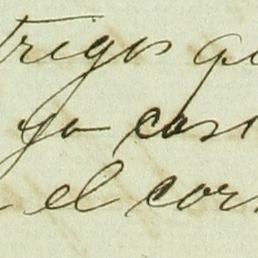 trigos qu
ya cos
el cor